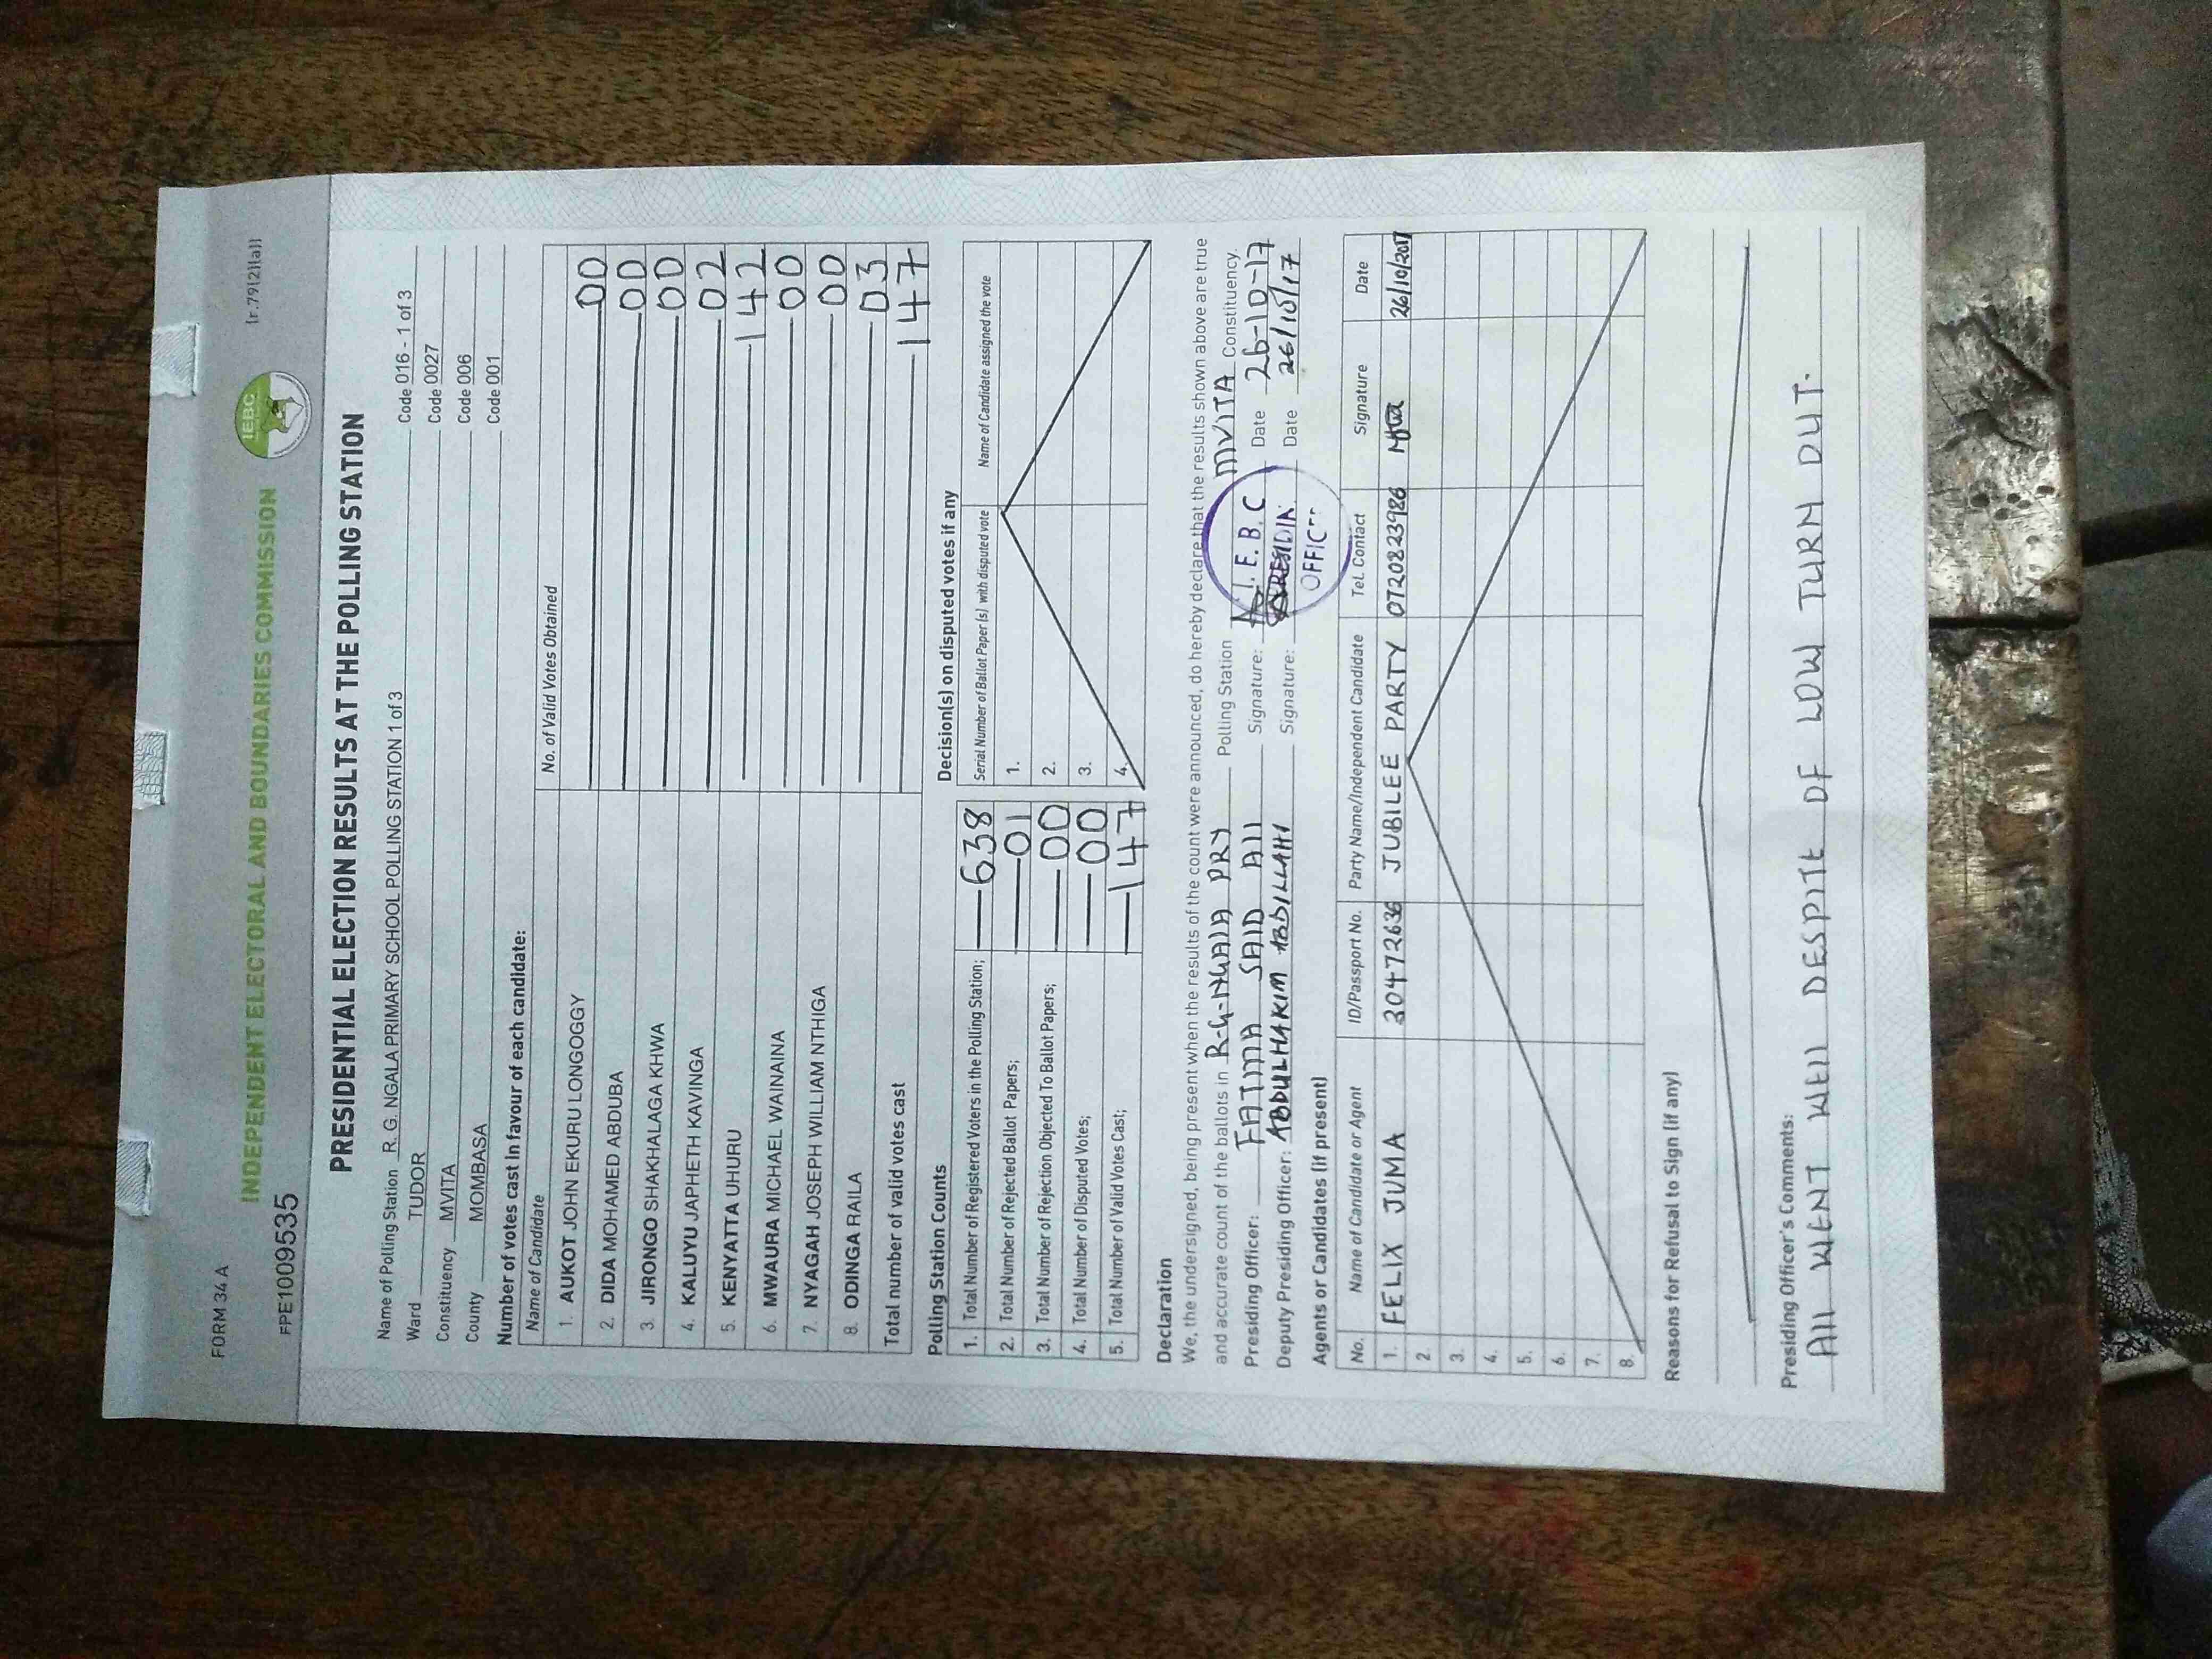 FORM 34 A
(r.79(2)(a))
INDEPENDENT ELECTORAL AND BOUNDARIES COMMISSION
IEBC
FPE1009535
PRESIDENTIAL ELECTION RESULTS AT THE POLLING STATION
Name of Polling Station R. G. NGALA PRIMARY SCHOOL POLLING STATION 1 of 3 Code 016 - 1 of 3
Ward TUDOR Code 0027
Constituency MVITA Code 006
County MOMBASA Code 001
Number of votes cast in favour of each candidate:
Name of Candidate No. of Valid Votes Obtained
1. AUKOT JOHN EKURU LONGOGGY 00
2. DIDA MOHAMED ABDUBA 00
3. JIRONGO SHAKHALAGA KHWA 00
4. KALUYU JAPHETH KAVINGA 02
5. KENYATTA UHURU 142
6. MWAURA MICHAEL WAINAINA 00
7. NYAGAH JOSEPH WILLIAM NTHIGA 00
8. ODINGA RAILA 03
Total number of valid votes cast 147
Polling Station Counts
1. Total Number of Registered Voters in the Polling Station; 638
2. Total Number of Rejected Ballot Papers; 01
3. Total Number of Rejection Objected To Ballot Papers; 00
4. Total Number of Disputed Votes; 00
5. Total Number of Valid Votes Cast; 147
Decision(s) on disputed votes if any
Serial Number of Ballot Paper (s) with disputed vote Name of Candidate assigned the vote
1.
2.
3.
4.
Declaration
We, the undersigned, being present when the results of the count were announced, do hereby declare that the results shown above are true
and accurate count of the ballots in R-G-NGALA PRY Polling Station MVITA Constituency.
Presiding Officer: FATMA SAID Ali Signature: Date 26-10-17
Deputy Presiding Officer: ABDULHAKIM ABDILLAHI Signature: Date 26/10/17
I.E.B.C
PRESIDIN
OFFICE
Agents or Candidates (if present)
No. Name of Candidate or Agent ID/Passport No. Party Name/Independent Candidate Tel. Contact Signature Date
1. FELIX JUMA 30472636 JUBILEE PARTY 0720823986 26/10/2017
2.
3.
4.
5.
6.
7.
8.
Reasons for Refusal to Sign (if any)
Presiding Officer's Comments:
All WENT WEll DESPITE OF LOW TURN OUT.